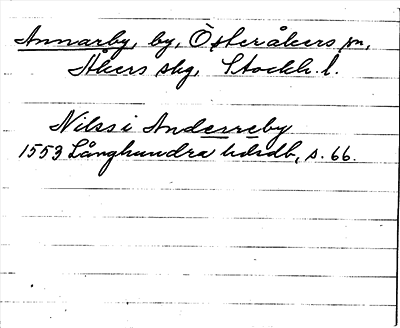 Annarby, by, Österåkers sn,
Åkers skg, Stockh. l.
Nils i Anderreby
1553 Långhundra hdrdb, s. 66.